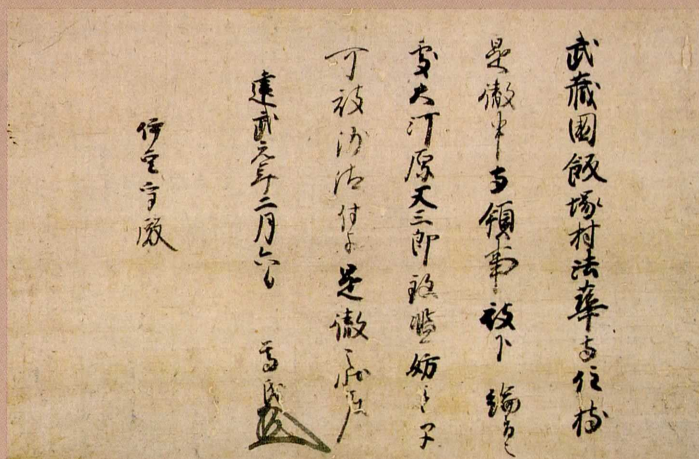 武蔵國飯塚村法華寺住持
是徹申寺領事被下綸旨之
處大河原又三郎致濫妨云々
可被沙汰付于是徹之状如件
建武元年二月六日 高氏
伊豆守殿